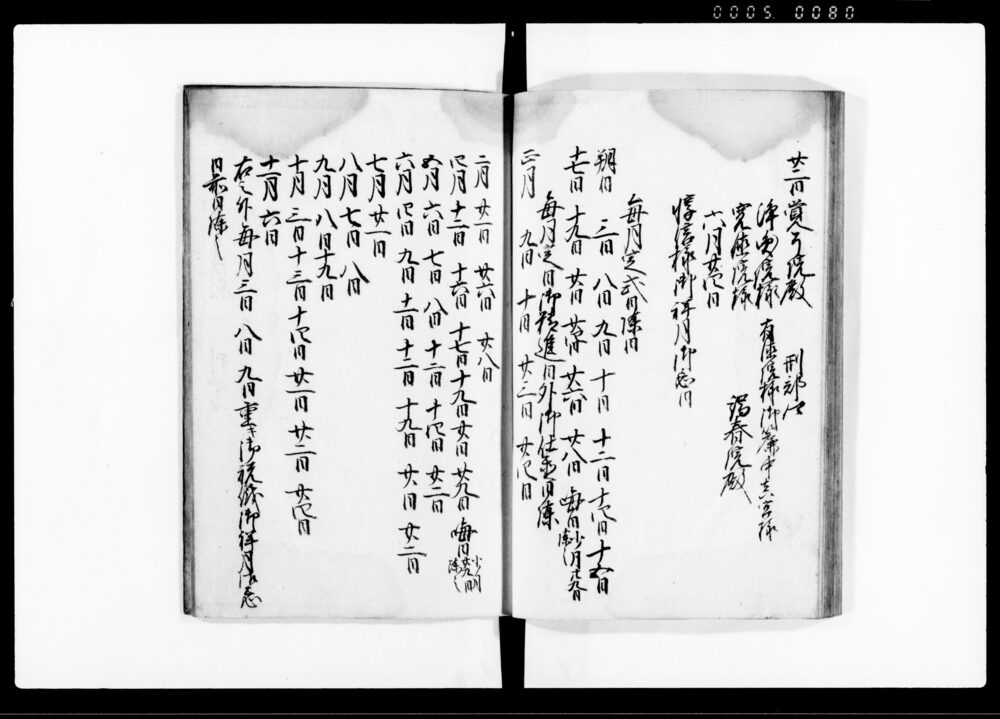 0005 0080
廿二日 覚了院殿 刑部卿
浄円院様 有徳院様御簾中真宮様
寛徳院様 深春院殿
六月廿四日
惇信院様御祥月御忌日
毎月定式日除日
朔日 三日 八日 九日 十日 十二日 十四日 十五日
十七日 十九日 廿日 廿四日 廿六日 廿八日 晦日 少ノ月廿九日除之
毎月定日御精進日外御仕置日除
正月 九日 十日 廿二日 廿四日
二月 廿一日 廿六日 廿八日
四月 十二日 十六日 十七日 十九日 廿日 廿九日 晦日 少ノ月廿九日除之
五月 六日 七日 八日 十二日 十四日 廿二日
六月 四日 九日 十一日 十二日 十九日 廿日 廿二日
七月 廿一日
八月 七日 八日
九月 八日 十九日
十月 三日 十三日 十四日 廿一日 廿二日 廿四日
十一月 六日
右之外毎月三日 八日 九日 重キ御祝儀御祥月御忌
日前日除之